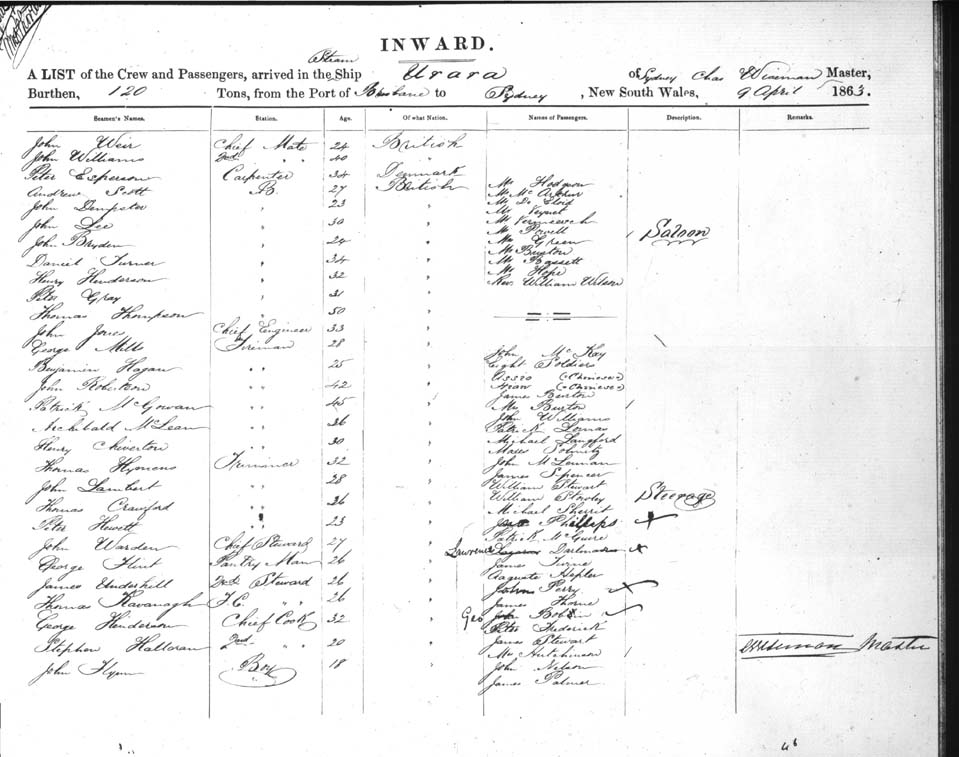 INWARD.
Steam
A LIST of the Crew and Passengers, arrived in the Ship Urara of Sydney Chas Wiseman Master,
Burthen, 120 Tons, from the Port of Brisbane to Sydney, New South Wales, 9 April 1863.
Seamen's Names. Station. Age. Of what Nation. Names of Passengers. Description. Remarks.
John Weir Chief Mate 24 British
John Williams 2nd " " 40 "
Peter Esperson Carpenter 34 Denmark
Andrew Scott AB. 27 British Mr Hodgson
John Dempster " 23 " Mr McArthur
John Lee " 30 "
John Bryden " 24 " Mr Powell
Daniel Turner " 34 " Mr Green
Henry Henderson " 32 " Mr Burton
Peter Gray " 31 " Mr Bassett
Thomas Thompson " 50 " Mr Hope
Rev. William Wilson
Saloon
John Jones Chief Engineer 33 "
George Mills Fireman 28 "
Benjamin Hagan " " 25 " John McKay
John Robertson " " 42 " Eight Soldiers
Patrick McGowan " " 45 " Assio (Chinese)
Archibald McLean " " 36 " (Chinese)
Henry Chiverton " " 30 " James Burton
Thomas Hymens Trimmer 32 " Mrs Burton
John Lambert " " 28 " John Williams
Thomas Crawford " " 26 " Patrick Lomas
Peter Hewett " " 23 " Michael Langford
John Warden Chief Steward 27 " Moses
George Flint Pantry Man 26 " John McLennan
James Underhill 2nd Steward 26 " James Spencer
Thomas Kavanagh F.C. " " 26 " William Stewart
George Henderson Chief Cook 32 " William Stowley
Stephen Halloran 2nd " " 20 " Michael Sherrit
John Flynn Boy 18 " Phillips
Steerage
Patrick McGuire
Lawrence
James Turne
Augusta Hepler
Perry
James Thorne
Geo
Peter Frederick
James Stewart
Mrs Hutchinson
John Nelson
James Palmer
CWiseman Master